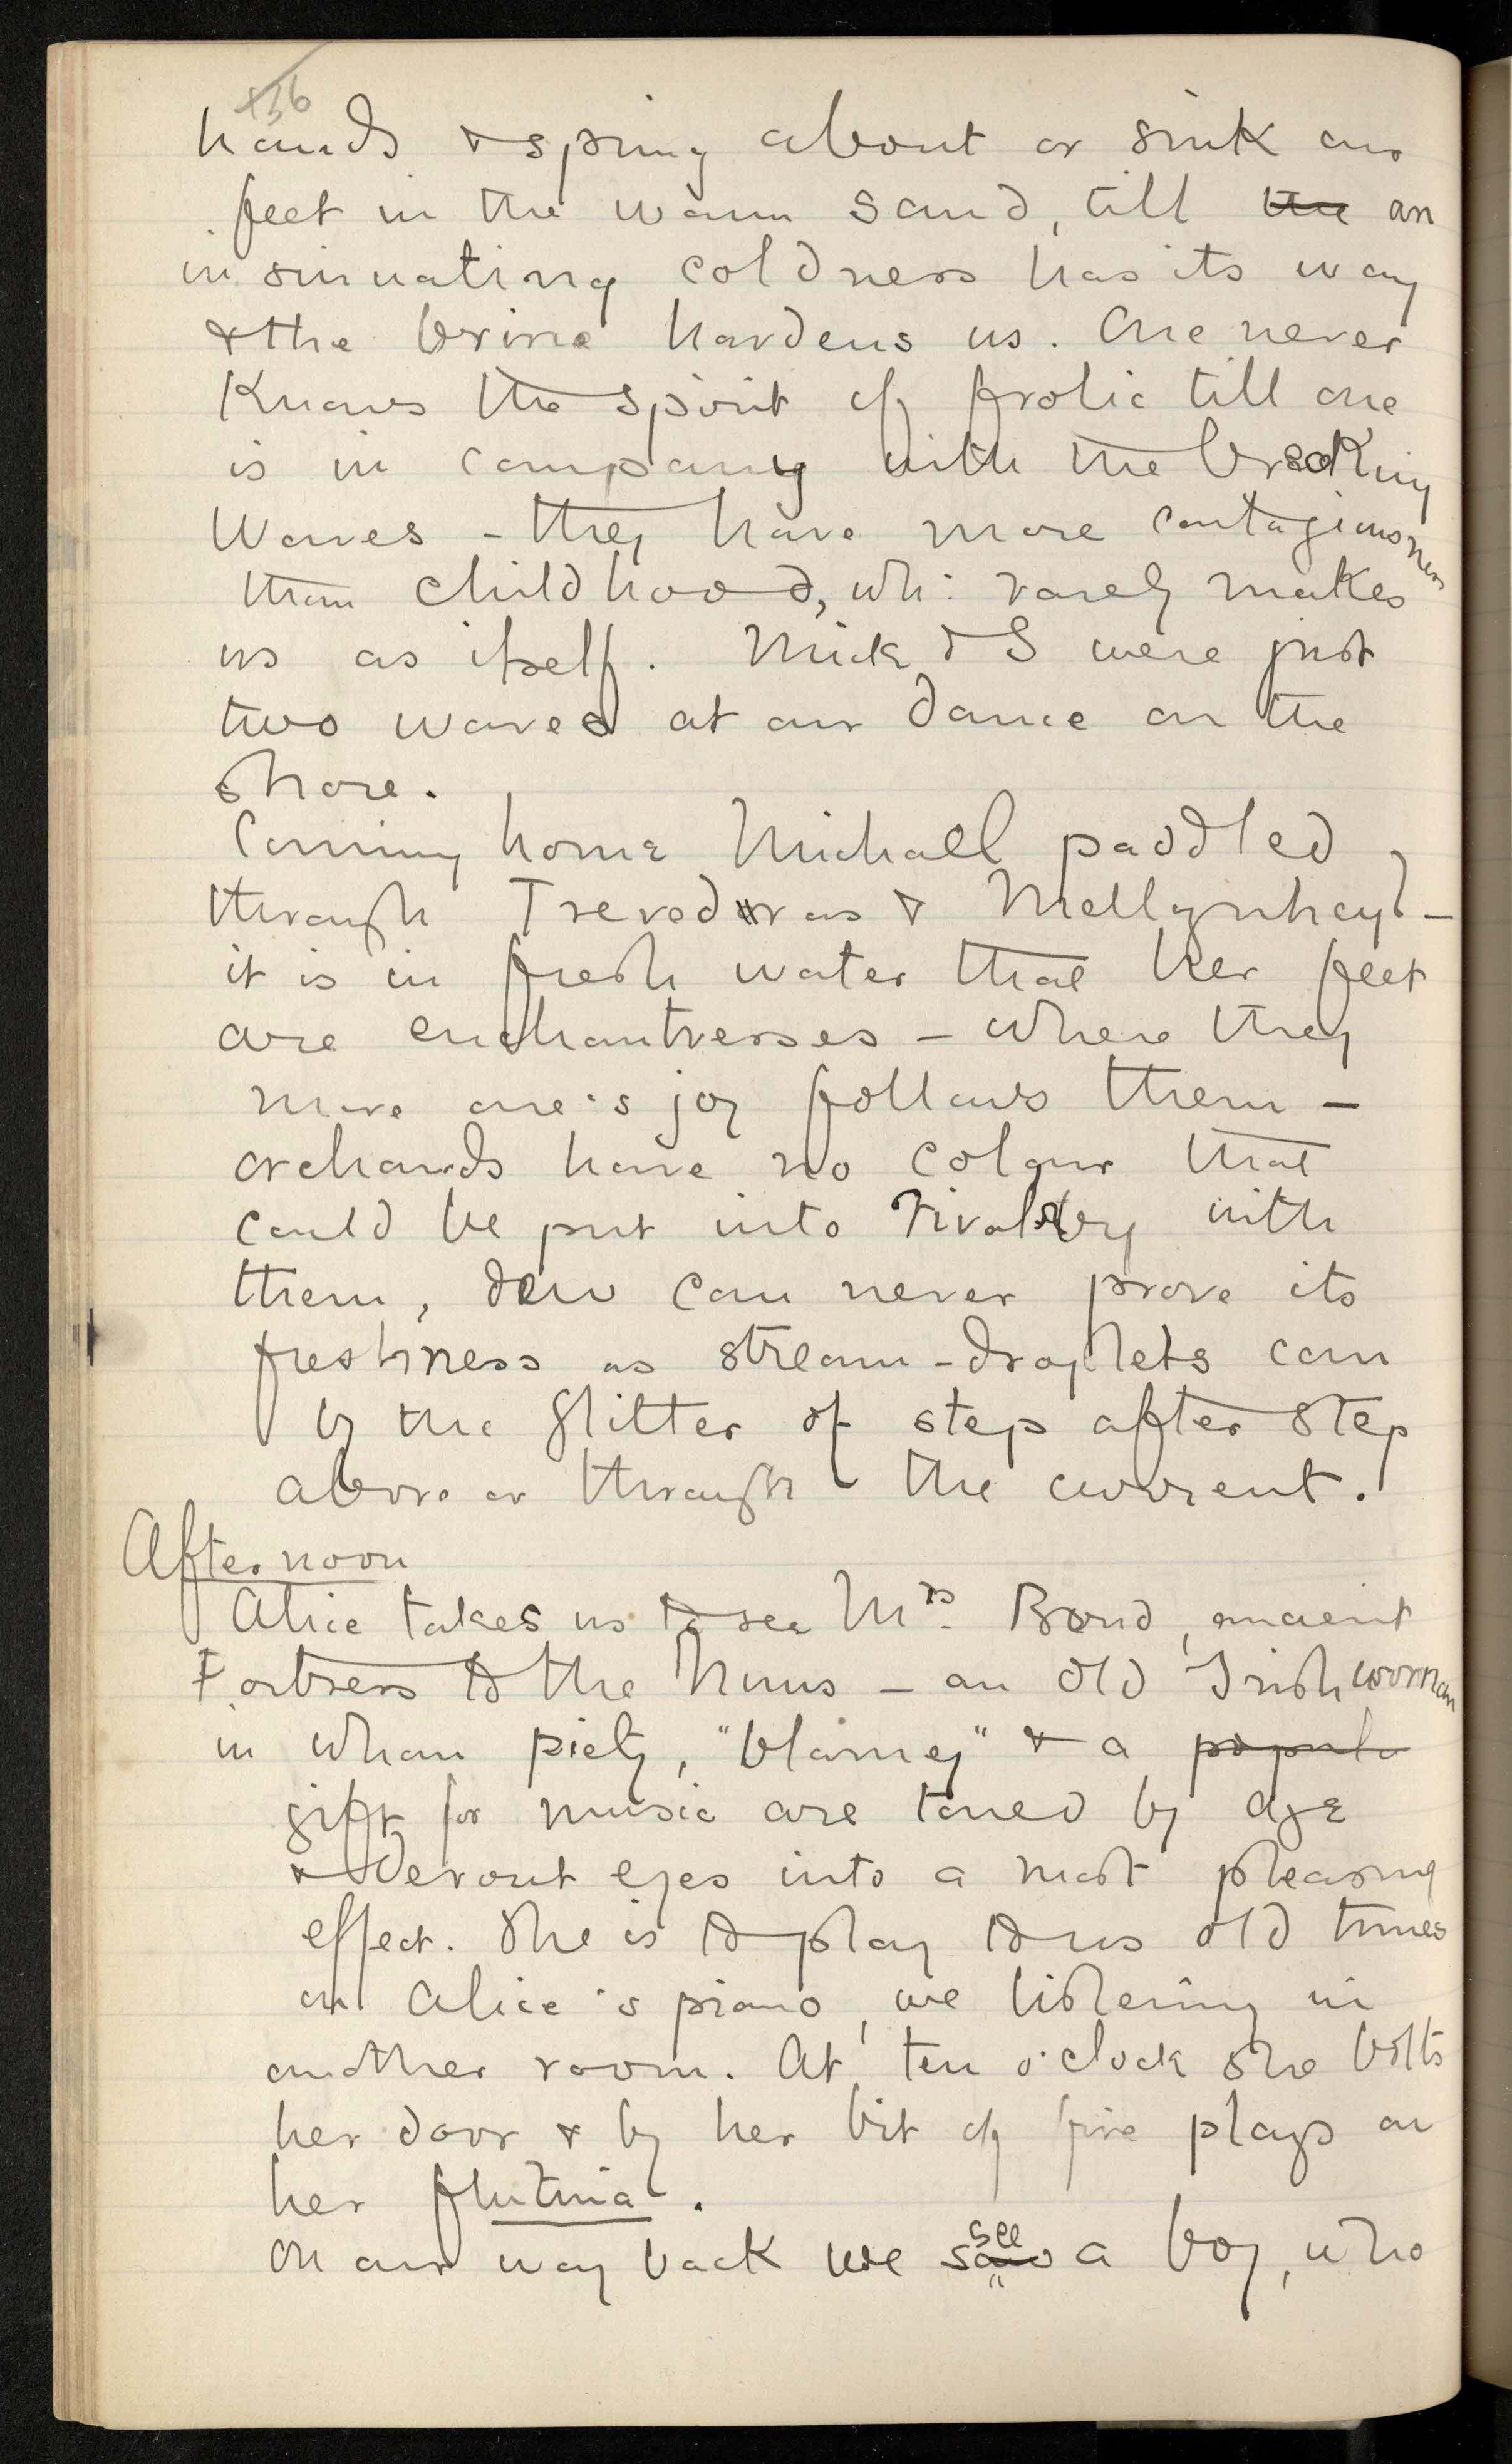 136
hands & spring about or sink our
feet in the warm sand, till the an
insinuating coldness has its way
& the brine hardens us. One never
knows the spirit of frolic till one
is in company with the breaking
waves – they have more contagiousness
than childhood, wh: rarely makes
us as itself. Mick & I were just
two waves at our dance on the
shore.
Coming home Michael paddled
through &
it is in fresh water that her feet
are enchantresses – where they
move one's joy follows them –
orchards have no colour that
could be put into rivalry with
them, dew can never prove its
freshness as stream-droplets can
by the glitter of step after step
above or through the current.
Afternoon
Alice takes us to see Mrs. Bond, ancient
Portress to the Nuns – an old Irish woman
in whom piety, "blarney" & a popula
gift for music are toned by age
& devout eyes into a most pleasing
effect. She is to play to us old tunes
on Alice's piano, we listening in
another room. At ten o'clock she bolts
her door & by her bit of fire plays on
her flutina.
On our way back we saw see a boy, who